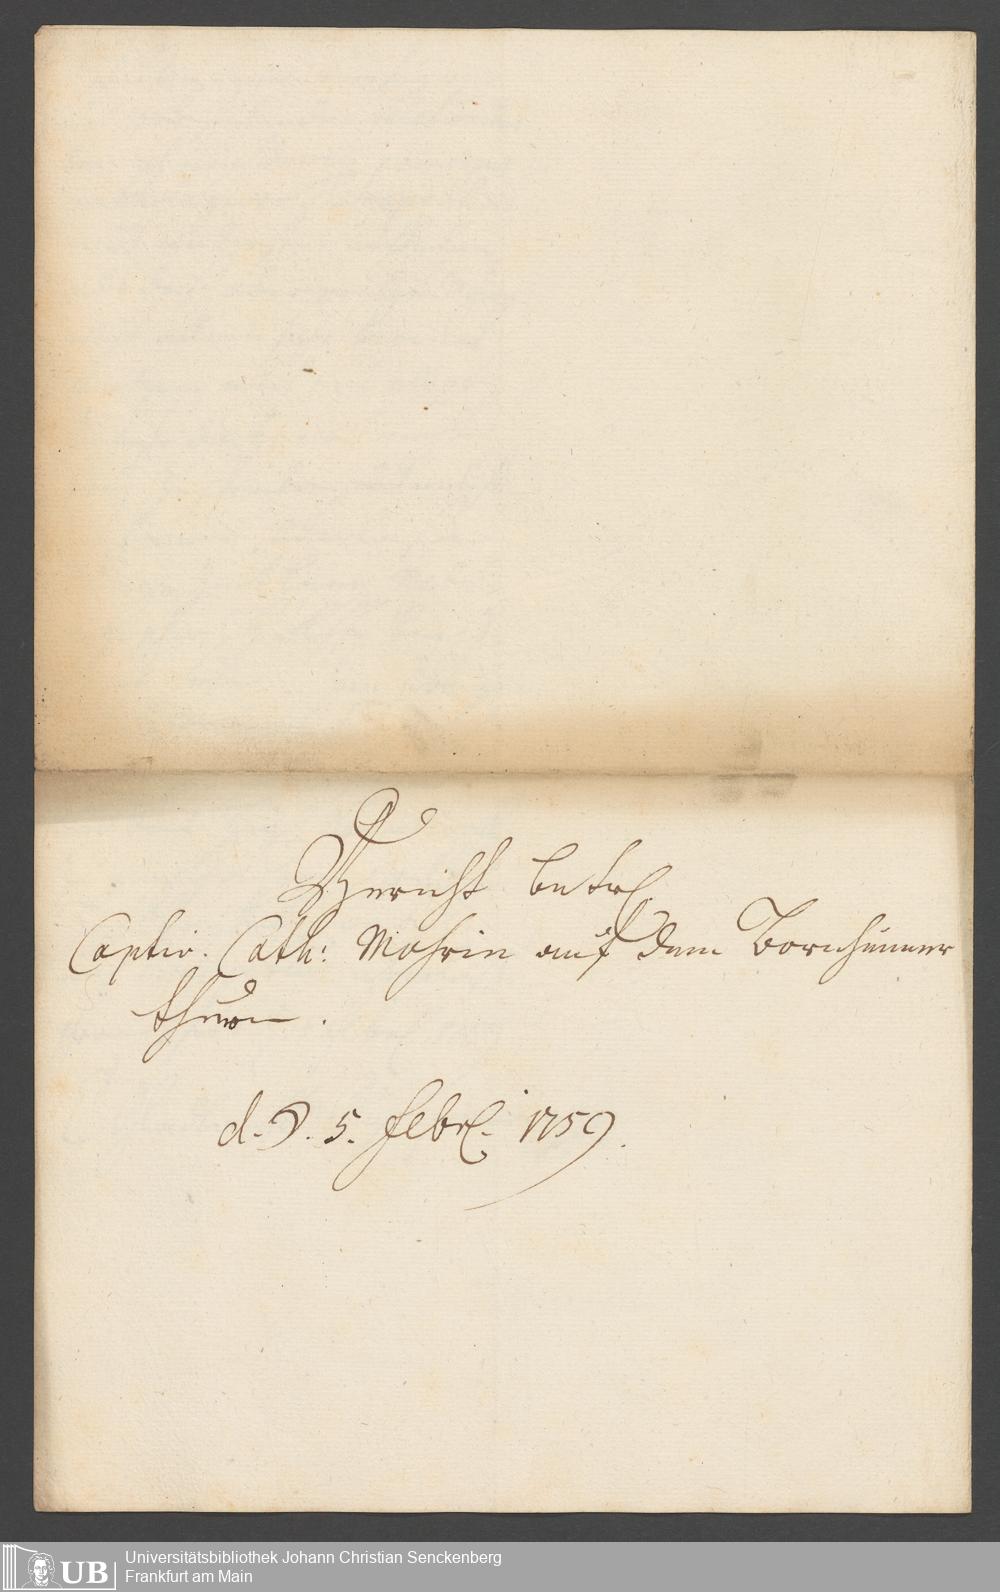 Bericht betrl.
Captiv. Cath: Mohrin auf dem Bornheimer
thurn.
d. 5. Febrl. 1759.
UB Universitätsbibliothek Johann Christian Senckenberg
Frankfurt am Main